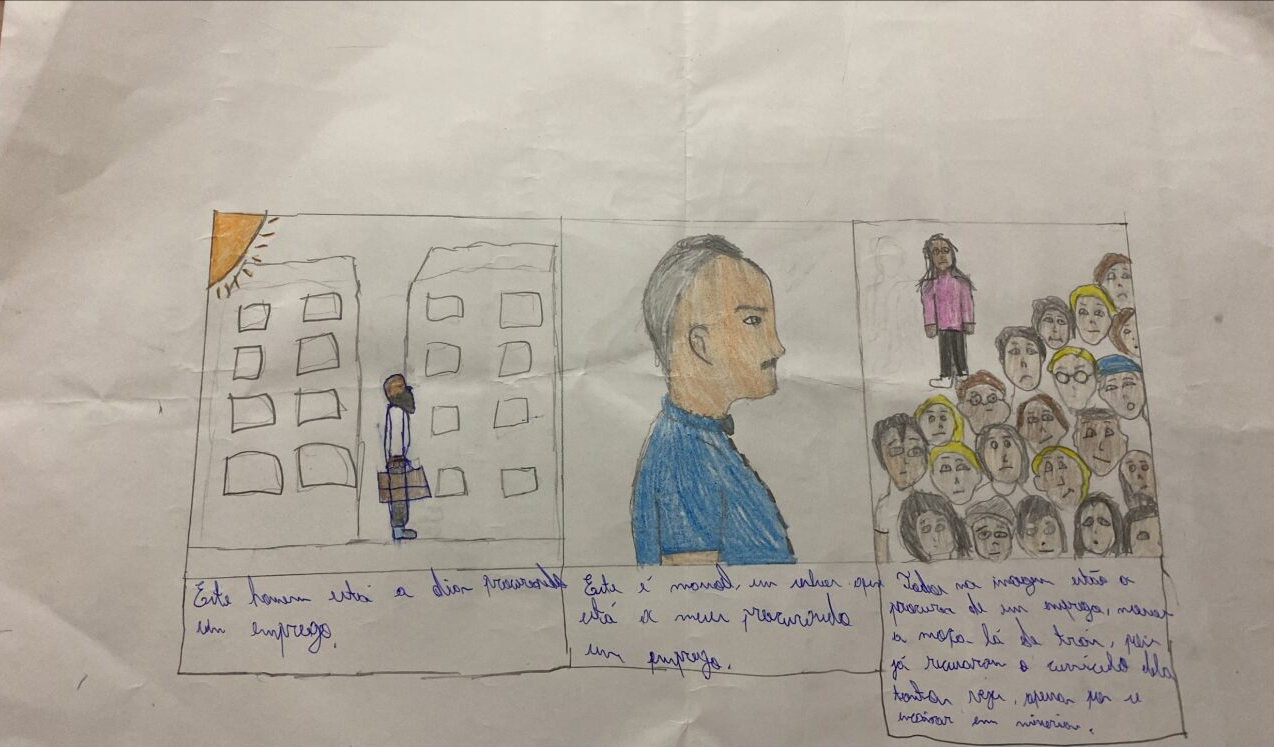 Este homem está a dias procurando
um emprego.
Este é manoel, um senhor que
está a meses procurando
um emprego.
Todos na imagem estão a
procura de um emprego, menos
a moça lá de trás, pois
já recusaram o currículo dela
tantas vezes, apenas por se
encaixar em minorias.